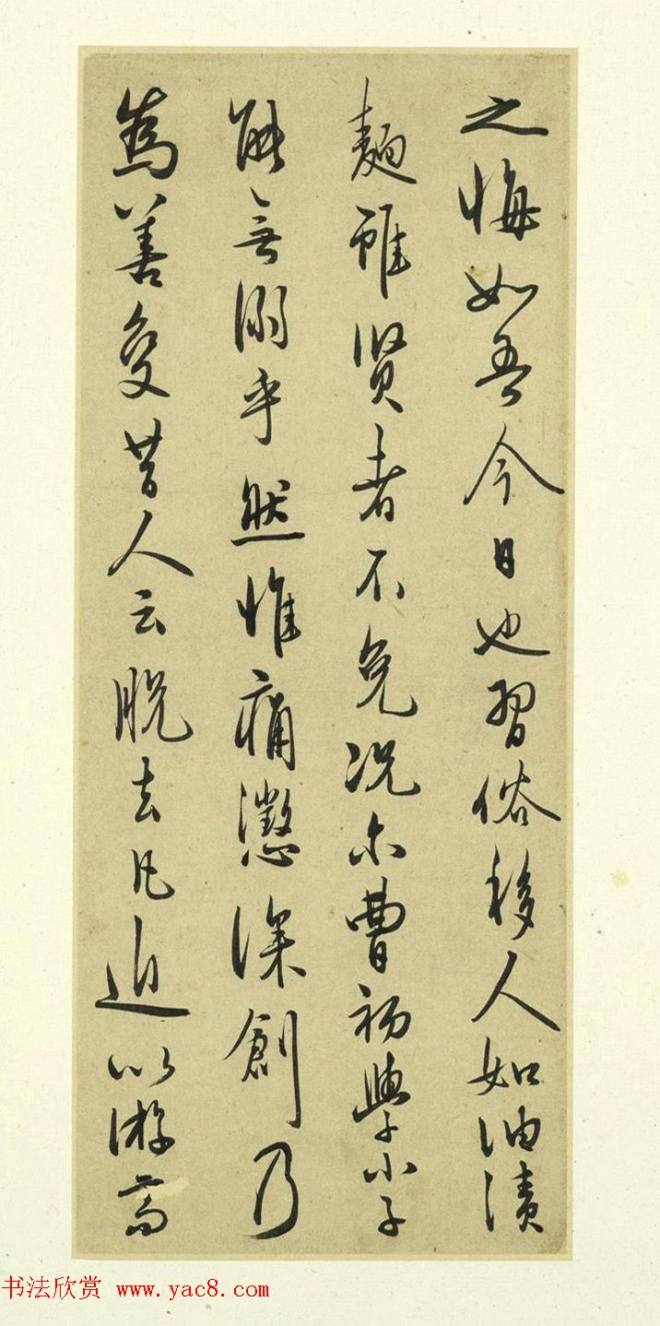 之悔如吾今日也習俗移人如油漬
麺雖賢者不免況尔曹初學小子
能無溺乎然惟痛懲深創乃
為善變昔人云脱去凡近以游高
书法欣赏 www.yac8.com